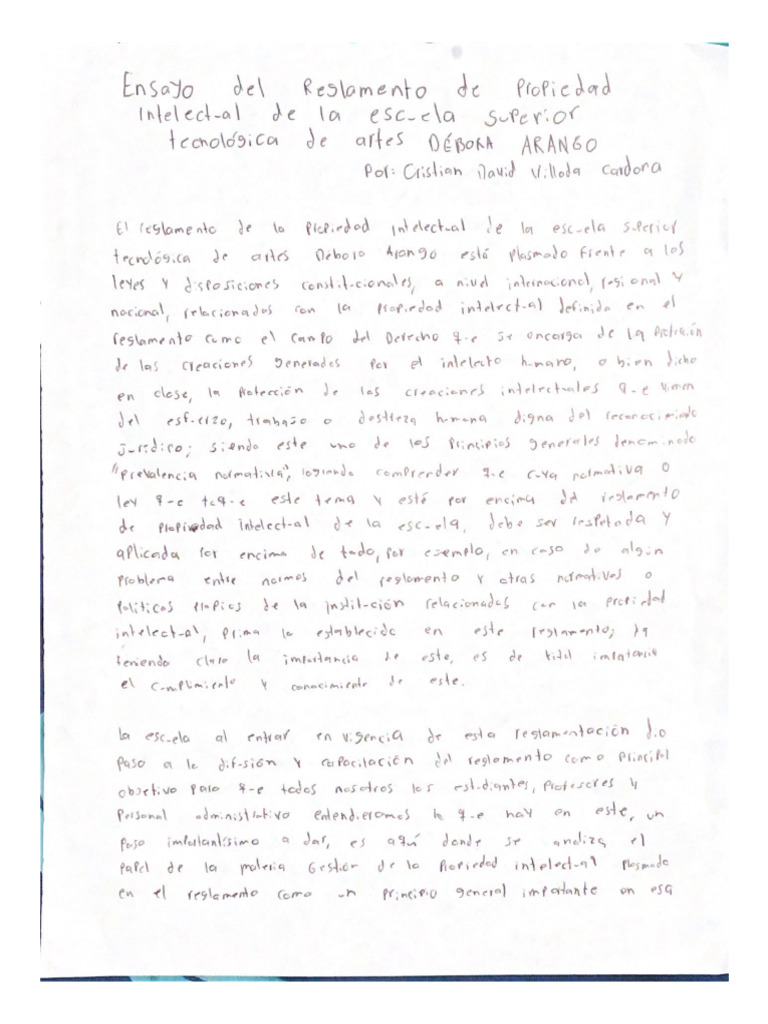 Ensayo del Reglamento de Propiedad
Intelectual de la escuela superior
tecnológica de artes DÉBORA ARANGO
Por: Cristian David Villada Cardona
El reglamento de la Propiedad Intelectual de la escuela superior
tecnológica de artes Debora Arango está plasmado frente a las
leyes y disposiciones constitucionales, a nivel internacional, regional y
nacional, relacionados con la propiedad intelectual definida en el
reglamento como el campo del Derecho que se encarga de la protección
de las creaciones generadas por el intelecto humano, o bien dicho
en clase, la protección de las creaciones intelectuales que vienen
del esfuerzo, trabajo o destreza humana digna del reconocimiento
jurídico; siendo este uno de los principios generales denominado
"prevalencia normativa", logrando comprender que cuya normativa o
ley que toque este tema y esté por encima del reglamento
de propiedad intelectual de la escuela, debe ser respetada y
aplicada por encima de todo, por ejemplo, en caso de algún
problema entre normas del reglamento y otras normativas o
políticas propias de la institución relacionadas con la propiedad
intelectual, prima lo establecido en este reglamento; ya
teniendo claro la importancia de este, es de vital importancia
el cumplimiento y conocimiento de este.
La escuela al entrar en vigencia de esta reglamentación dio
paso a la difusión y capacitación del reglamento como principal
objetivo para que todos nosotros los estudiantes, profesores y
personal administrativo entendieramos lo que hay en este, un
paso importantísimo a dar, es aquí donde se analiza el
papel de la materia Gestión de la Propiedad intelectual plasmado
en el reglamento como un principio general importante en esa